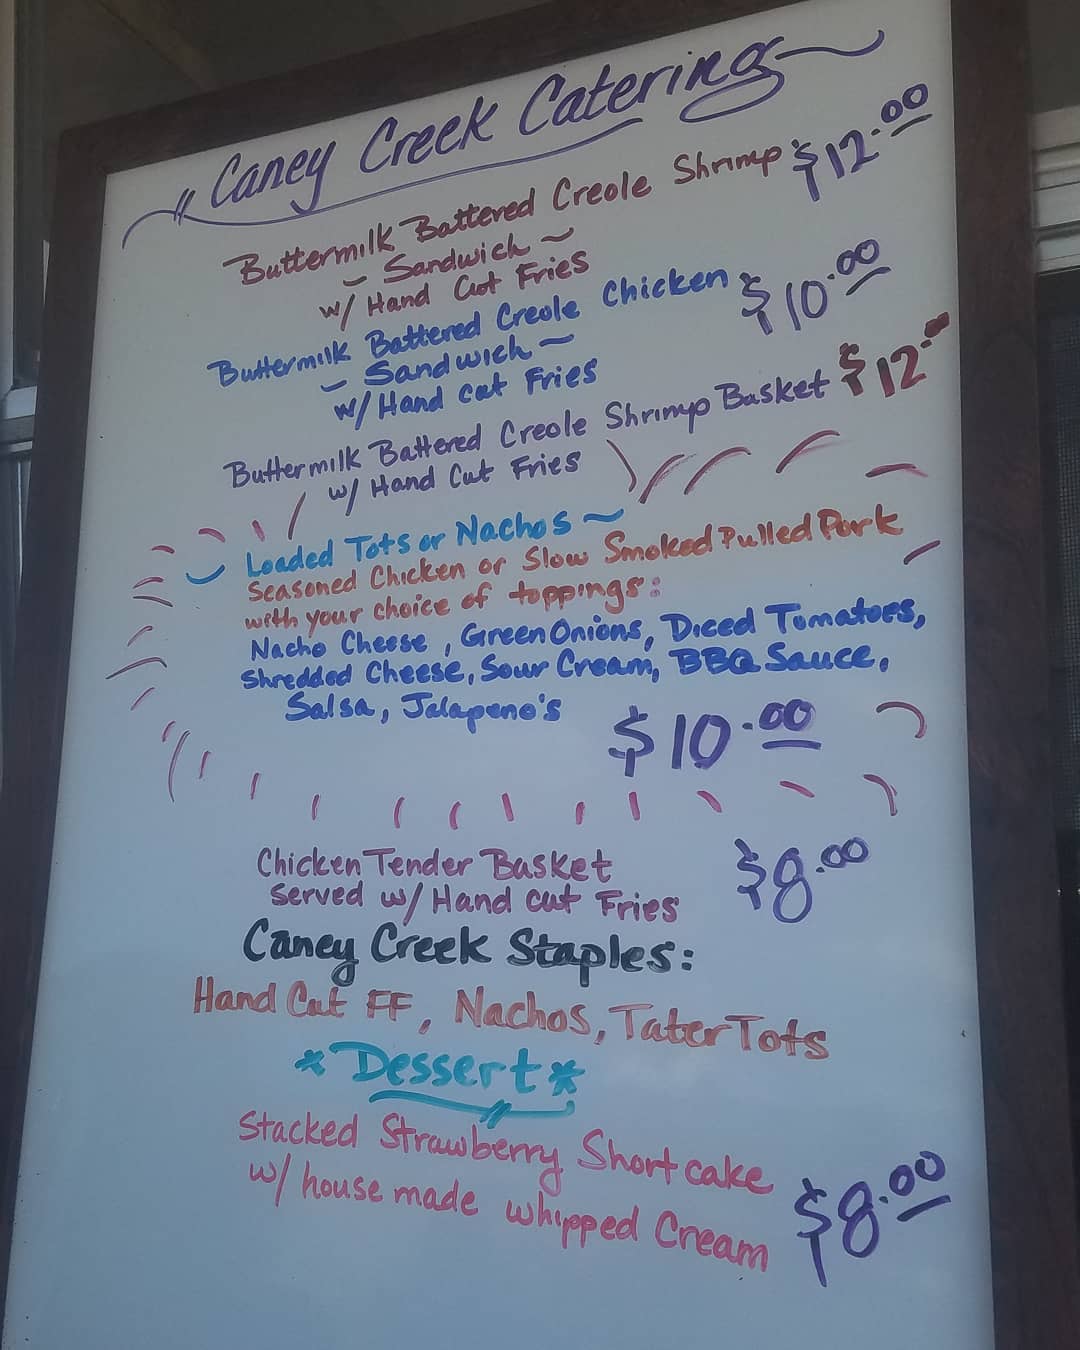 Caney Creek Catering
Buttermilk Battered Creole Shrimp $12.00
~ Sandwich ~
w/ Hand Cut Fries
Buttermilk Battered Creole Chicken $10.00
~ Sandwich ~
w/ Hand cut Fries
Buttermilk Battered Creole Shrimp Basket $12.00
w/ Hand Cut Fries
~ Loaded Tots or Nachos ~
Seasoned Chicken or Slow Smoked Pulled Pork
with your choice of toppings:
Nacho Cheese, Green Onions, Diced Tomatoes,
Shredded Cheese, Sour Cream, BBQ Sauce,
Salsa, Jalapeno's
$10.00
Chicken Tender Basket $8.00
Served w/ Hand cut Fries
Caney Creek Staples:
Hand Cut FF, Nachos, Tater Tots
*Dessert*
Stacked Strawberry Shortcake
w/ house made whipped Cream $8.00